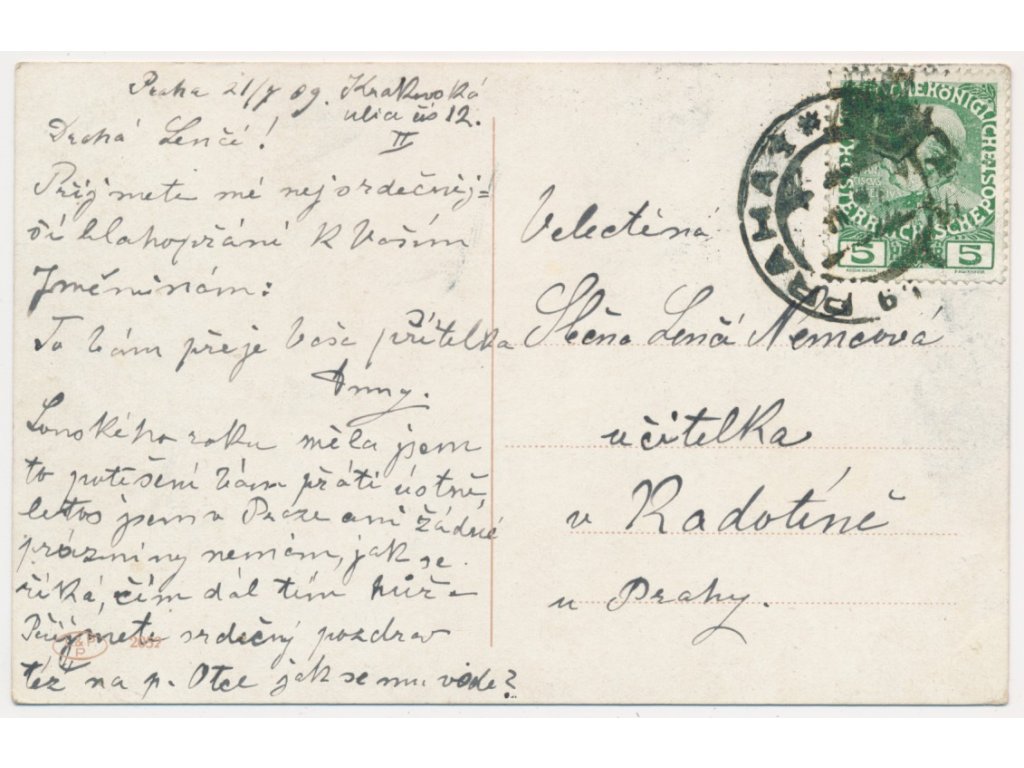 Praha 21/7 09. Krakovská
ulice čís 12.
II
Drahá Lenčí!
Přijmete mé nejsrdečněj=
ší blahopřání k Vašim
Jměninám:
To Vám přeje Vaše přítelka
Anny.
Lonského roku měla jsem
to potěšení Vám přáti ústně,
letos jsem v Praze ani žádné
prázniny nemám, jak se
říká, čím dál tím hůře
Přijmete srdečný pozdrav
též na p. Otce jak se mu vede?
2052
Velectěná
Slečna Lenčí Nemcová
učitelka
v Radotíně
u Prahy.
PRAHA 1
5 5